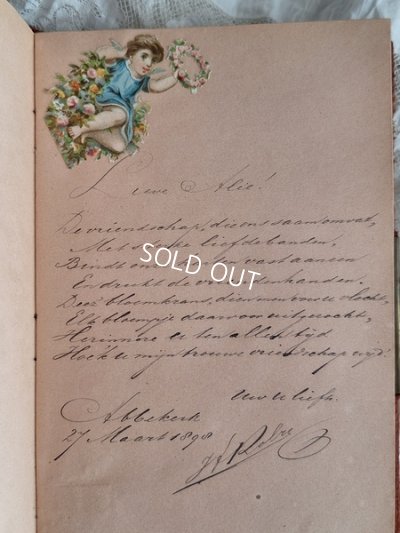 Lieve Alie!
De vriendschap, die ons saam omvat,
Met sterke liefdebanden,
Bindt ons harten vast aaneen
En drukt de vriendenhanden.
Deez' bloemkrans, dien men voor u vlocht,
Elk bloempje daarvoor uitgezocht,
Herinnere u ten allen tijd
Hoe'k u mijn trouwe vriendschap wijd!
Uw u liefh.
Abbekerk
27 Maart 1898
SOLD OUT